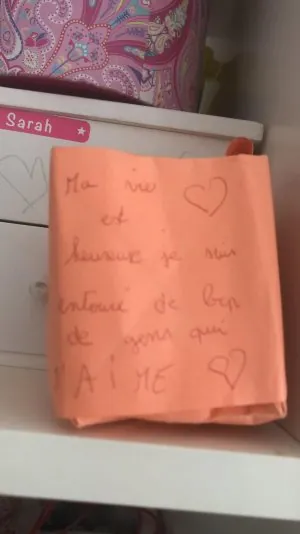 Sarah
Ma vie
et
heureuse je suis
entouré de bcp
de gens qui
m'AiME